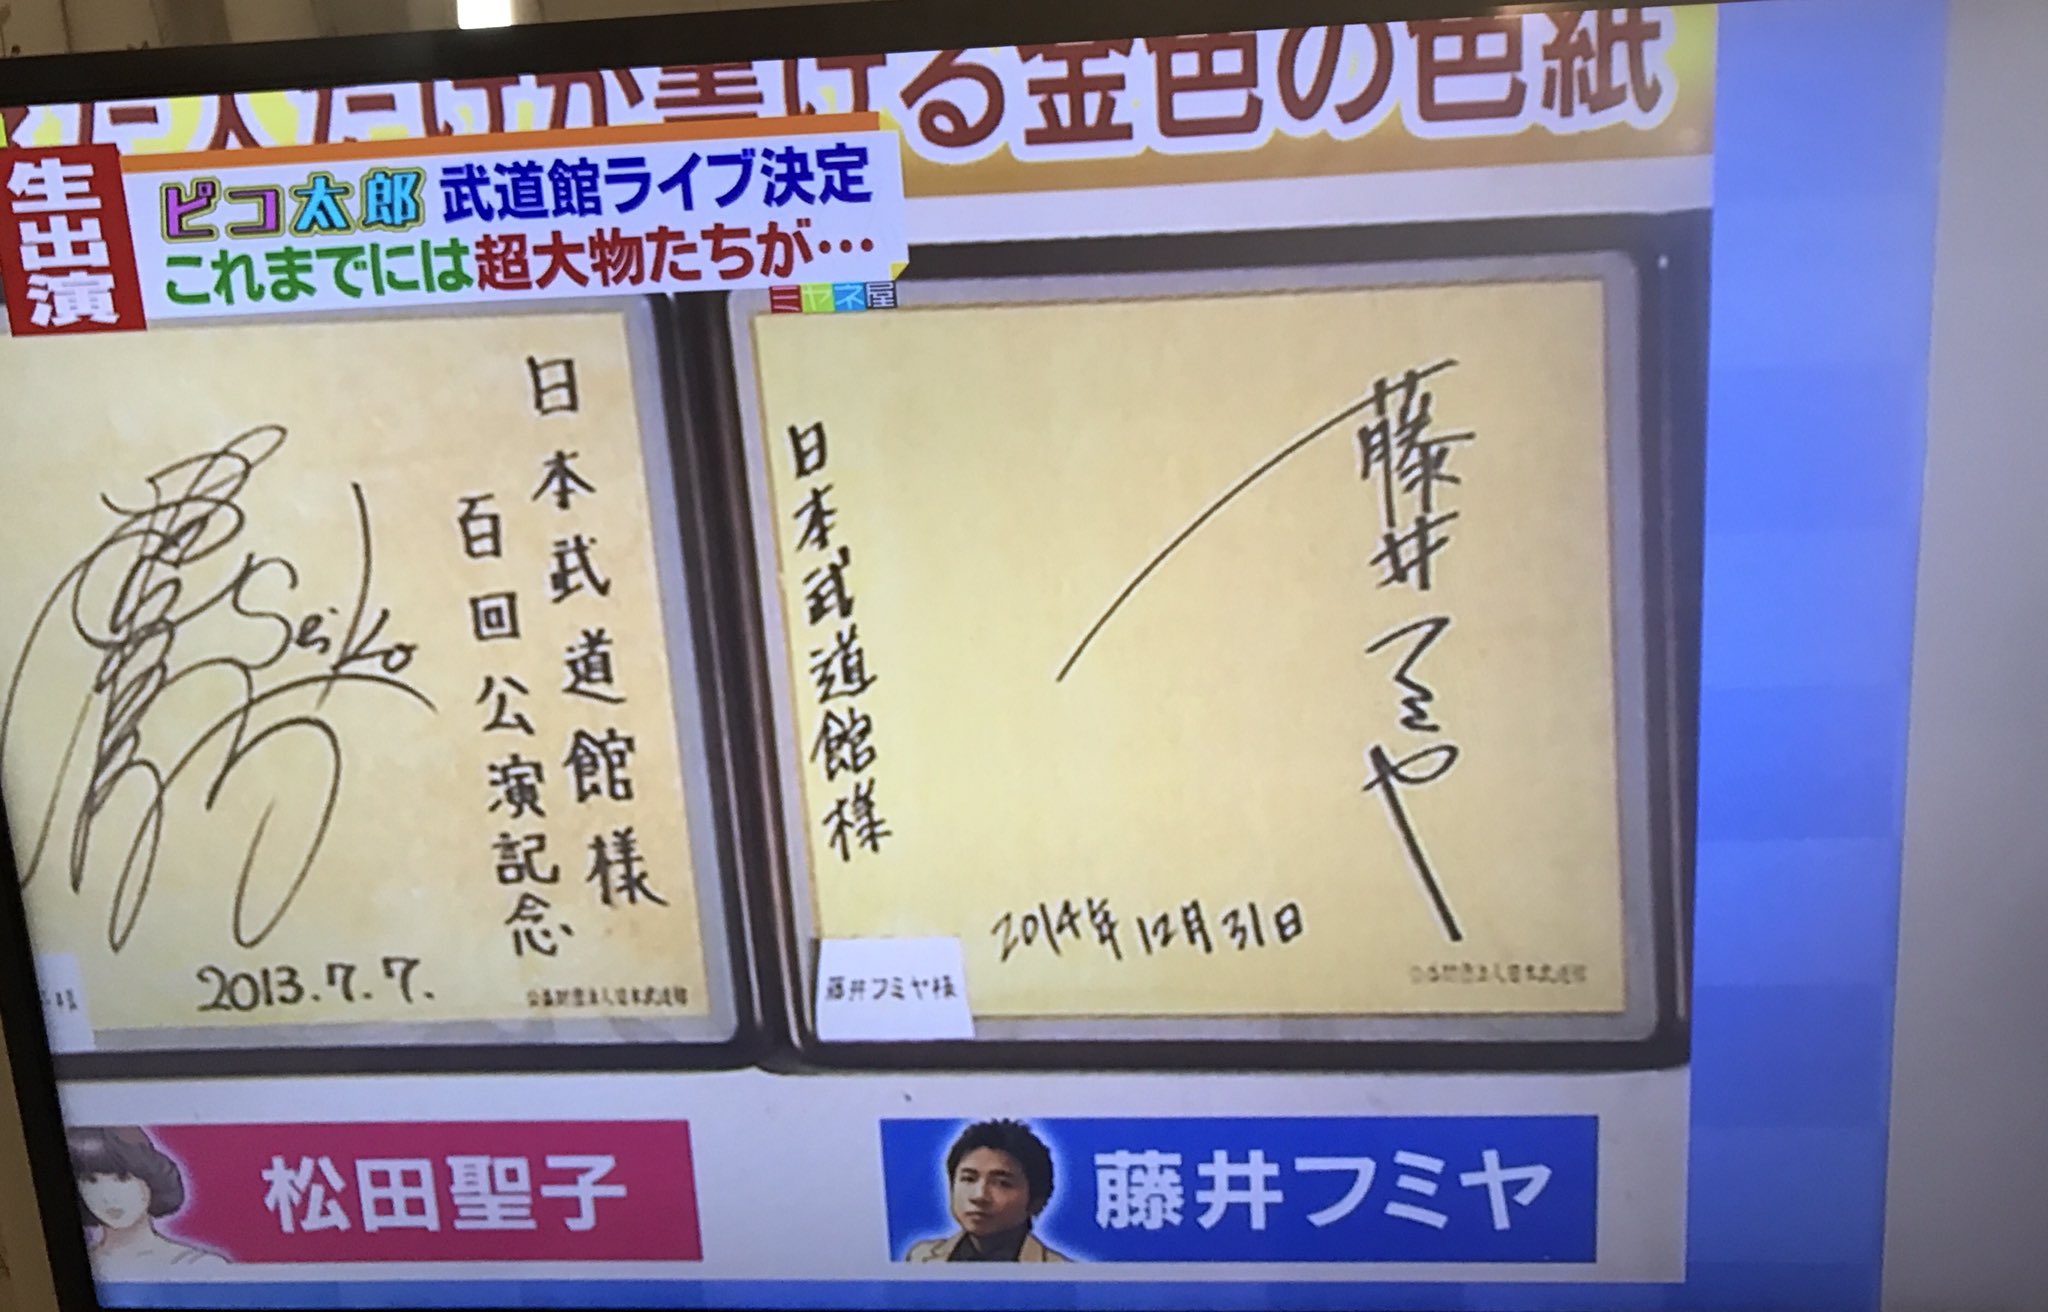 人だけが書ける金色の色紙
生出演
ピコ太郎 武道館ライブ決定
これまでには超大物たちが…
ミヤネ屋
日本武道館様
百回公演記念
Seiko
2013.7.7.
公益財団法人日本武道館
藤井フミヤ
日本武道館様
2014年12月31日
藤井フミヤ様
公益財団法人日本武道館
松田聖子
藤井フミヤ